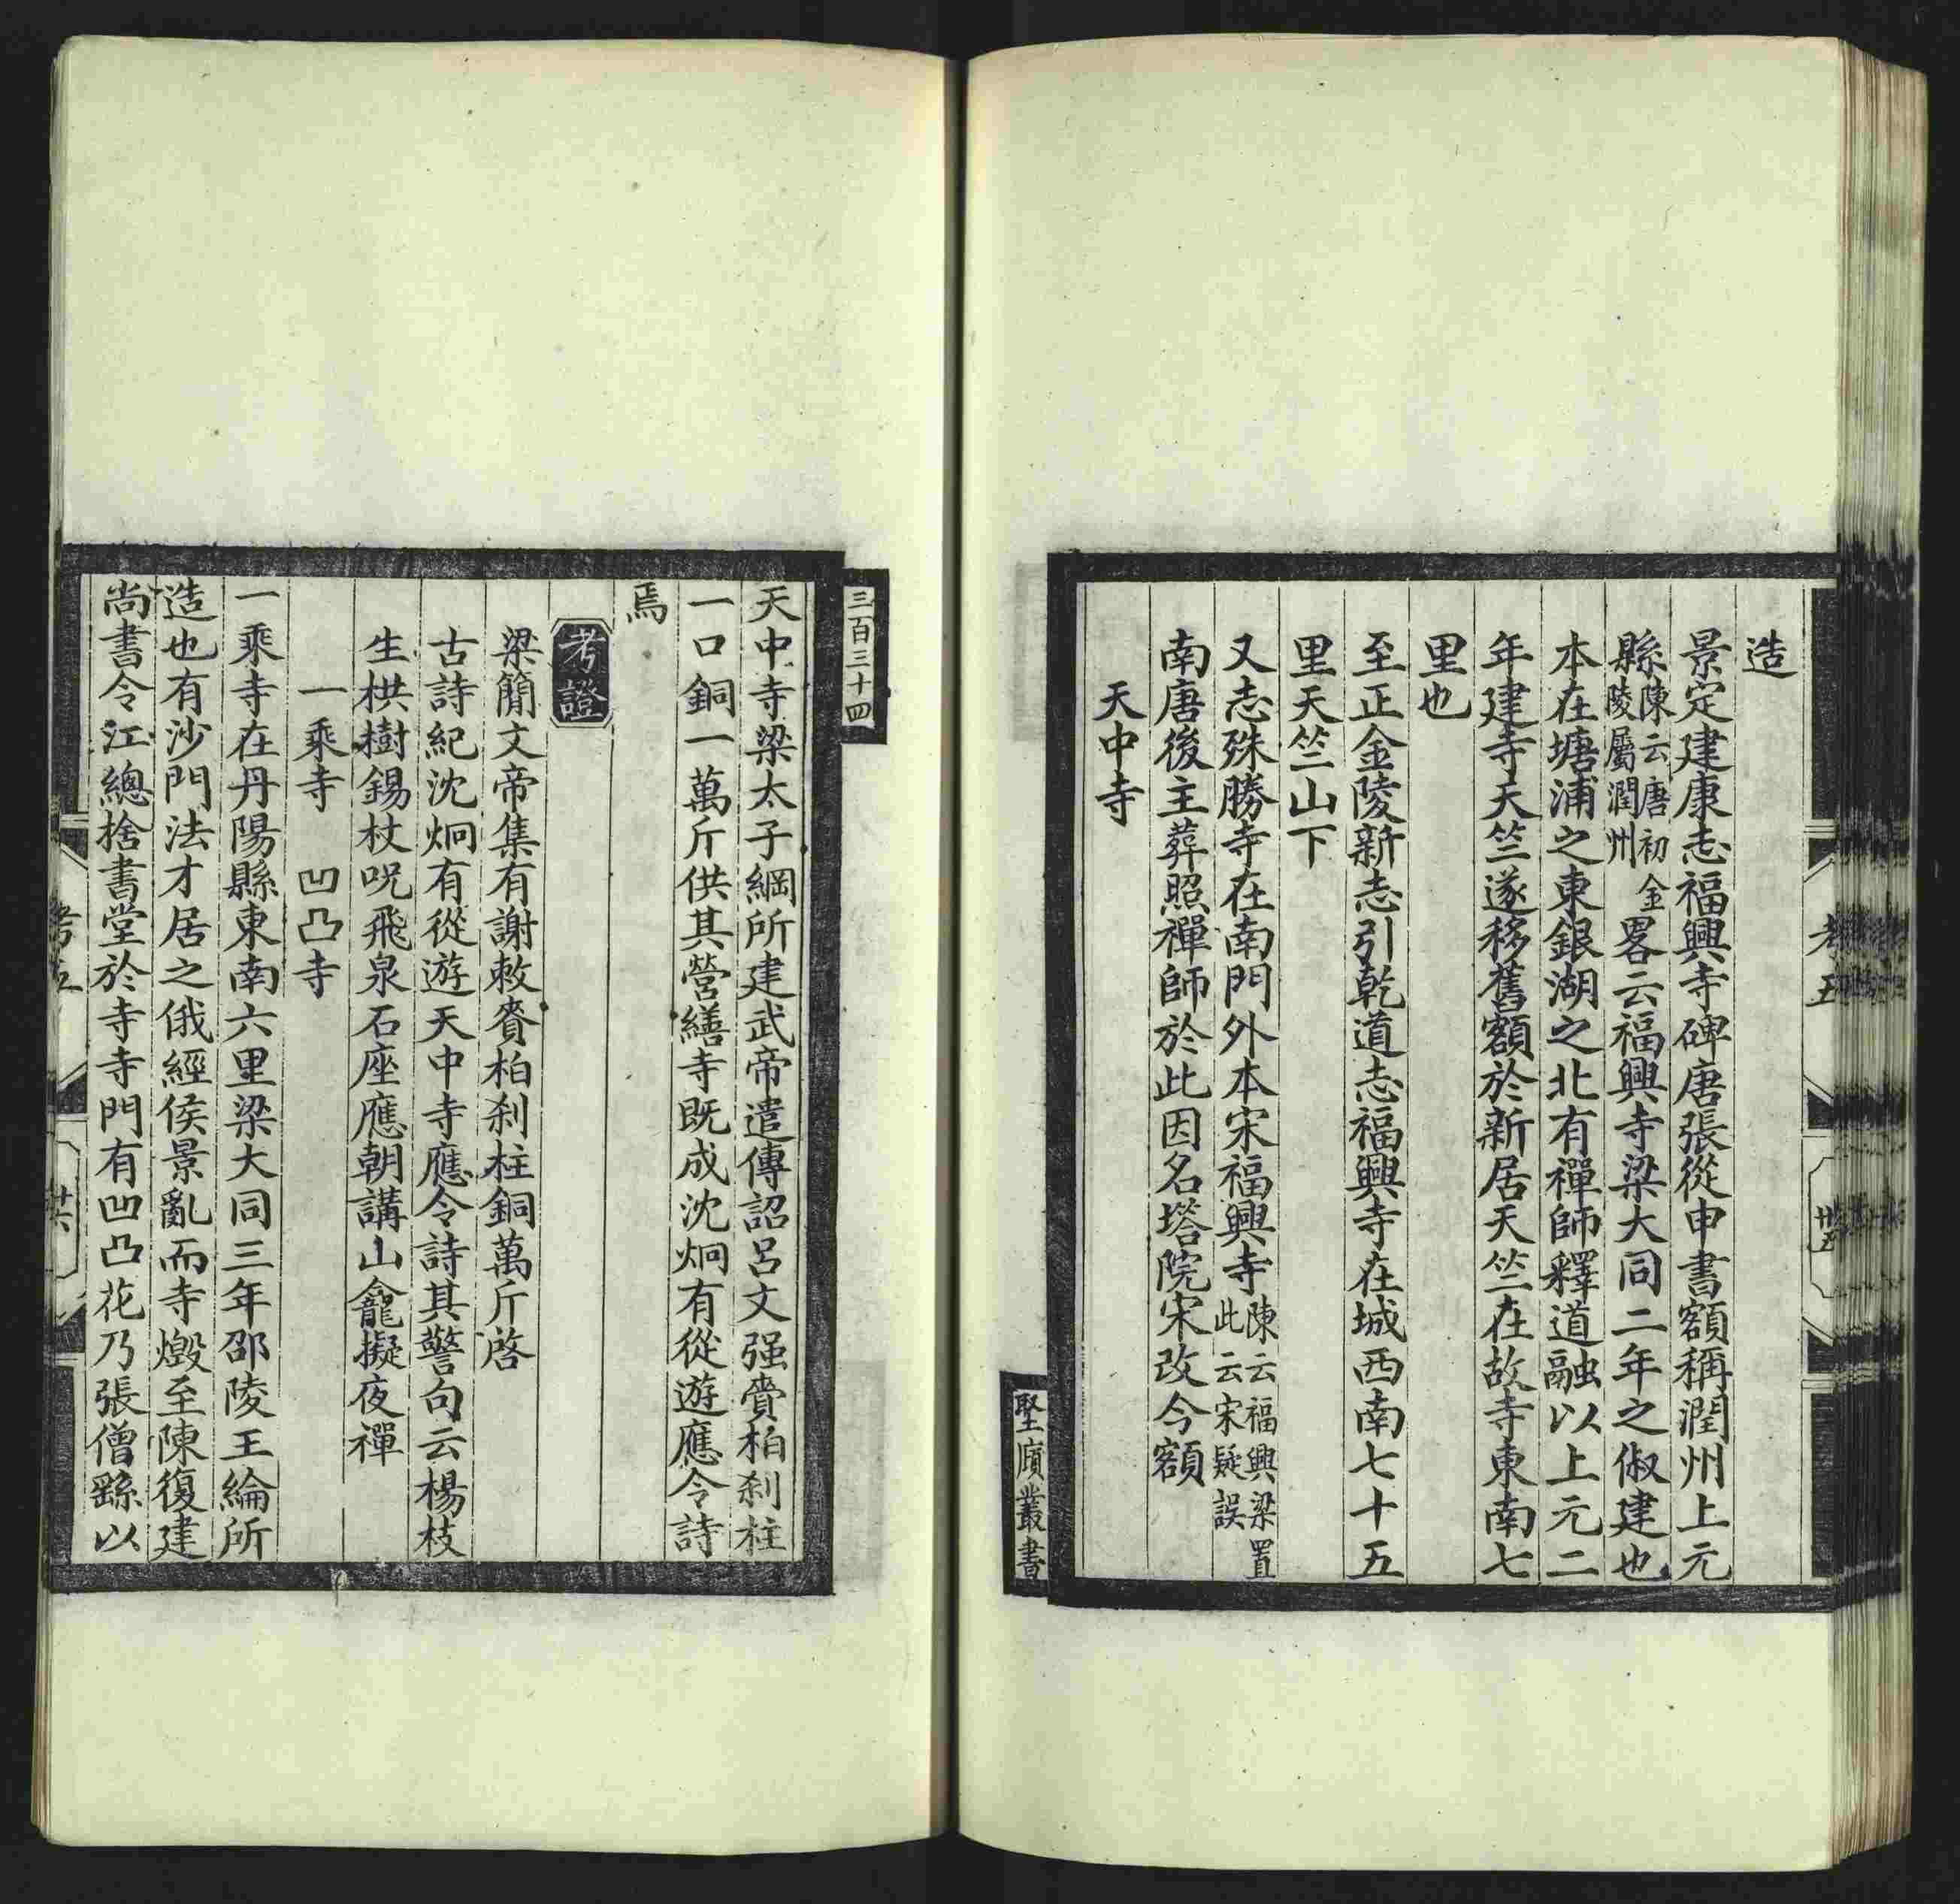 造
景定建康志福興寺碑唐張從申書額稱潤州上元
縣陳云唐初金陵屬潤州畧云福興寺梁大同二年之俶建也
本在塘浦之東銀湖之北有禪師釋道融以上元二
年建寺天竺遂移舊額於新居天竺在故寺東南七
里也
至正金陵新志引乾道志福興寺在城西南七十五
里天竺山下
又志殊勝寺在南門外本宋福興寺陳云福興梁置此云宋疑誤
南唐後主葬照禪師於此因名塔院宋改今額
天中寺
堅瓠叢書
三百三十四
天中寺梁太子綱所建武帝遣傳詔呂文强賚柏刹柱
一口銅一萬斤供其營繕寺既成沈炯有從遊應令詩
焉
考證
梁簡文帝集有謝敕賚柏刹柱銅萬斤啓
古詩紀沈炯有從遊天中寺應令詩其警句云楊枝
生栱樹錫杖呪飛泉石座應朝講山龕擬夜禪
一乘寺 凹凸寺
一乘寺在丹陽縣東南六里梁大同三年邵陵王綸所
造也有沙門法才居之俄經侯景亂而寺燬至陳復建
尚書令江總捨書堂於寺寺門有凹凸花乃張僧繇以